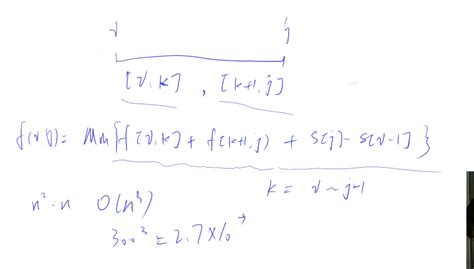 i j
[i,k] , [k+1,j]
f(i,j)= Min{f[i,k] + f[k+1,j) + S[j]- S[i-1] }
k = i ~ j-1
n²·n O(n³)
300³ = 2.7×10⁷